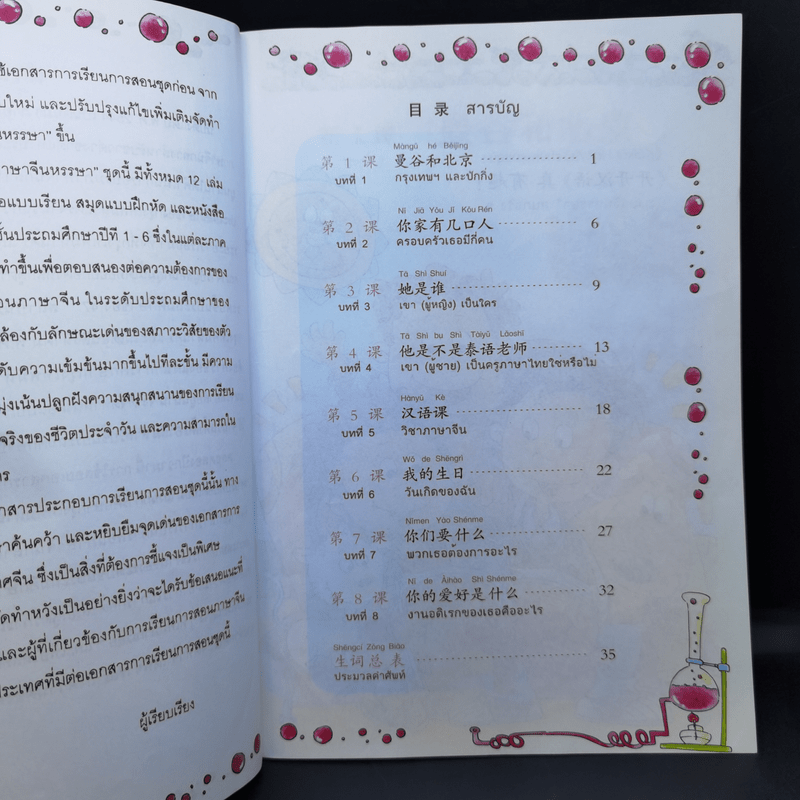 ช้เอกสารการเรียนการสอนชุดก่อน จาก
บใหม่ และปรับปรุงแก้ไขเพิ่มเติมจัดทำ
นหรรษา” ขึ้น
าษาจีนหรรษา” ชุดนี้ มีทั้งหมด 12 เล่ม
อแบบเรียน สมุดแบบฝึกหัด และหนังสือ
ชั้นประถมศึกษาปีที่ 1 - 6 ซึ่งในแต่ละภาค
ทำขึ้นเพื่อตอบสนองต่อความต้องการของ
อนภาษาจีน ในระดับประถมศึกษาของ
ล้องกับลักษณะเด่นของสภาวะวิสัยของตัว
ดับความเข้มข้นมากขึ้นไปทีละชั้น มีความ
มุ่งเน้นปลูกฝังความสนุกสนานของการเรียน
จริงของชีวิตประจำวัน และความสามารถใน
าร
กสารประกอบการเรียนการสอนชุดนี้นั้น ทาง
ราค้นคว้า และหยิบยืมจุดเด่นของเอกสารการ
ทศจีน ซึ่งเป็นสิ่งที่ต้องการชี้แจงเป็นพิเศษ
ัดทำหวังเป็นอย่างยิ่งว่าจะได้รับข้อเสนอแนะที่
และผู้ที่เกี่ยวข้องกับการเรียนการสอนภาษาจีน
ประเทศที่มีต่อเอกสารการเรียนการสอนชุดนี้
ผู้เรียบเรียง
目 录 สารบัญ
Màngǔ hé Běijīng
第 1 课 曼谷和北京 1
บทที่ 1 กรุงเทพฯ และปักกิ่ง
Nǐ Jiā Yǒu Jǐ Kǒu Rén
第 2 课 你家有几口人 6
บทที่ 2 ครอบครัวเธอมีกี่คน
Tā Shì Shuí
第 3 课 她是谁 9
บทที่ 3 เขา (ผู้หญิง) เป็นใคร
Tā Shì bu Shì Tàiyǔ Lǎoshī
第 4 课 他是不是泰语老师 13
บทที่ 4 เขา (ผู้ชาย) เป็นครูภาษาไทยใช่หรือไม่
Hànyǔ Kè
第 5 课 汉语课 18
บทที่ 5 วิชาภาษาจีน
Wǒ de Shēngrì
第 6 课 我的生日 22
บทที่ 6 วันเกิดของฉัน
Nǐmen Yào Shénme
第 7 课 你们要什么 27
บทที่ 7 พวกเธอต้องการอะไร
Nǐ de Àihào Shì Shénme
第 8 课 你的爱好是什么 32
บทที่ 8 งานอดิเรกของเธอคืออะไร
Shēngcí Zǒng Biǎo
生词总 表 35
ประมวลคำศัพท์